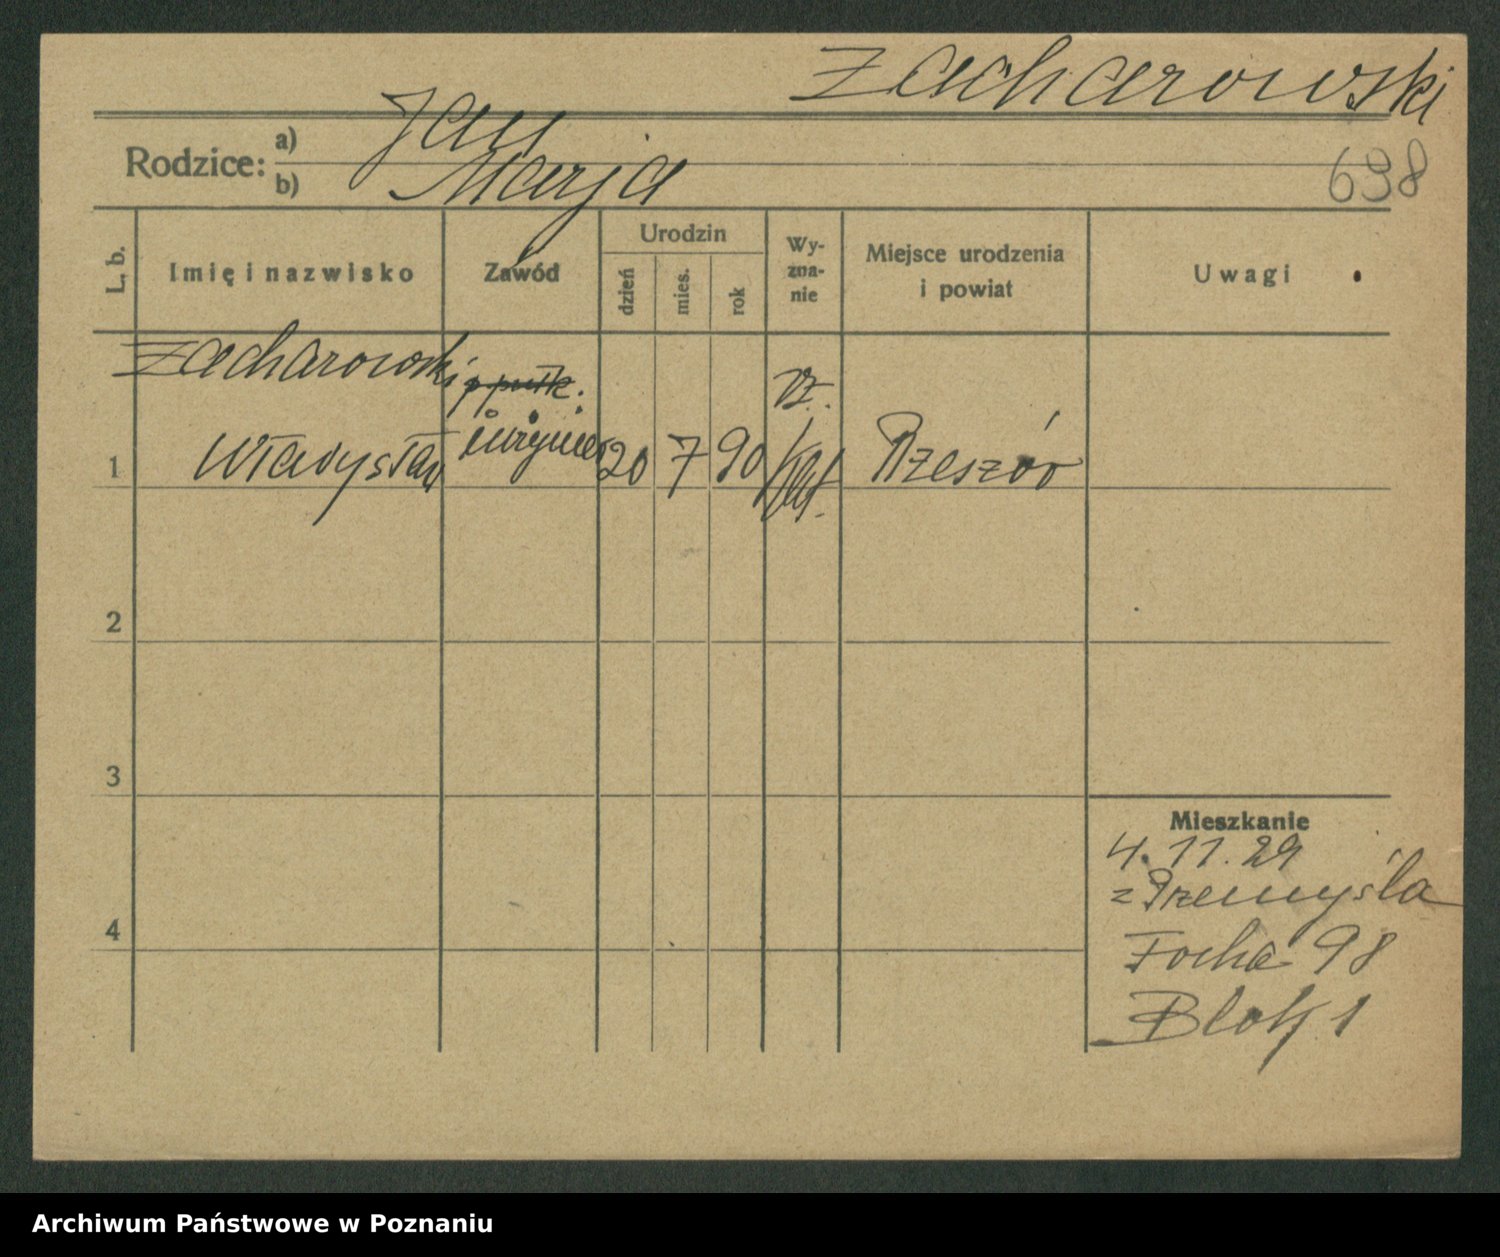 Zacharowski
Rodzice: a) Jan
b) Marja
698
L. b.
Imię i nazwisko
Zawód
Urodzin
dzień
mies.
rok
Wy-
zna-
nie
Miejsce urodzenia
i powiat
Uwagi
1
Zacharowski
Władysław
ppułk.
inżynier
20
7
90
rz.
kat.
Rzeszów
2
3
4
Mieszkanie
4.11.29
z Przemyśla
Focha 98
Blok 1
Archiwum Państwowe w Poznaniu